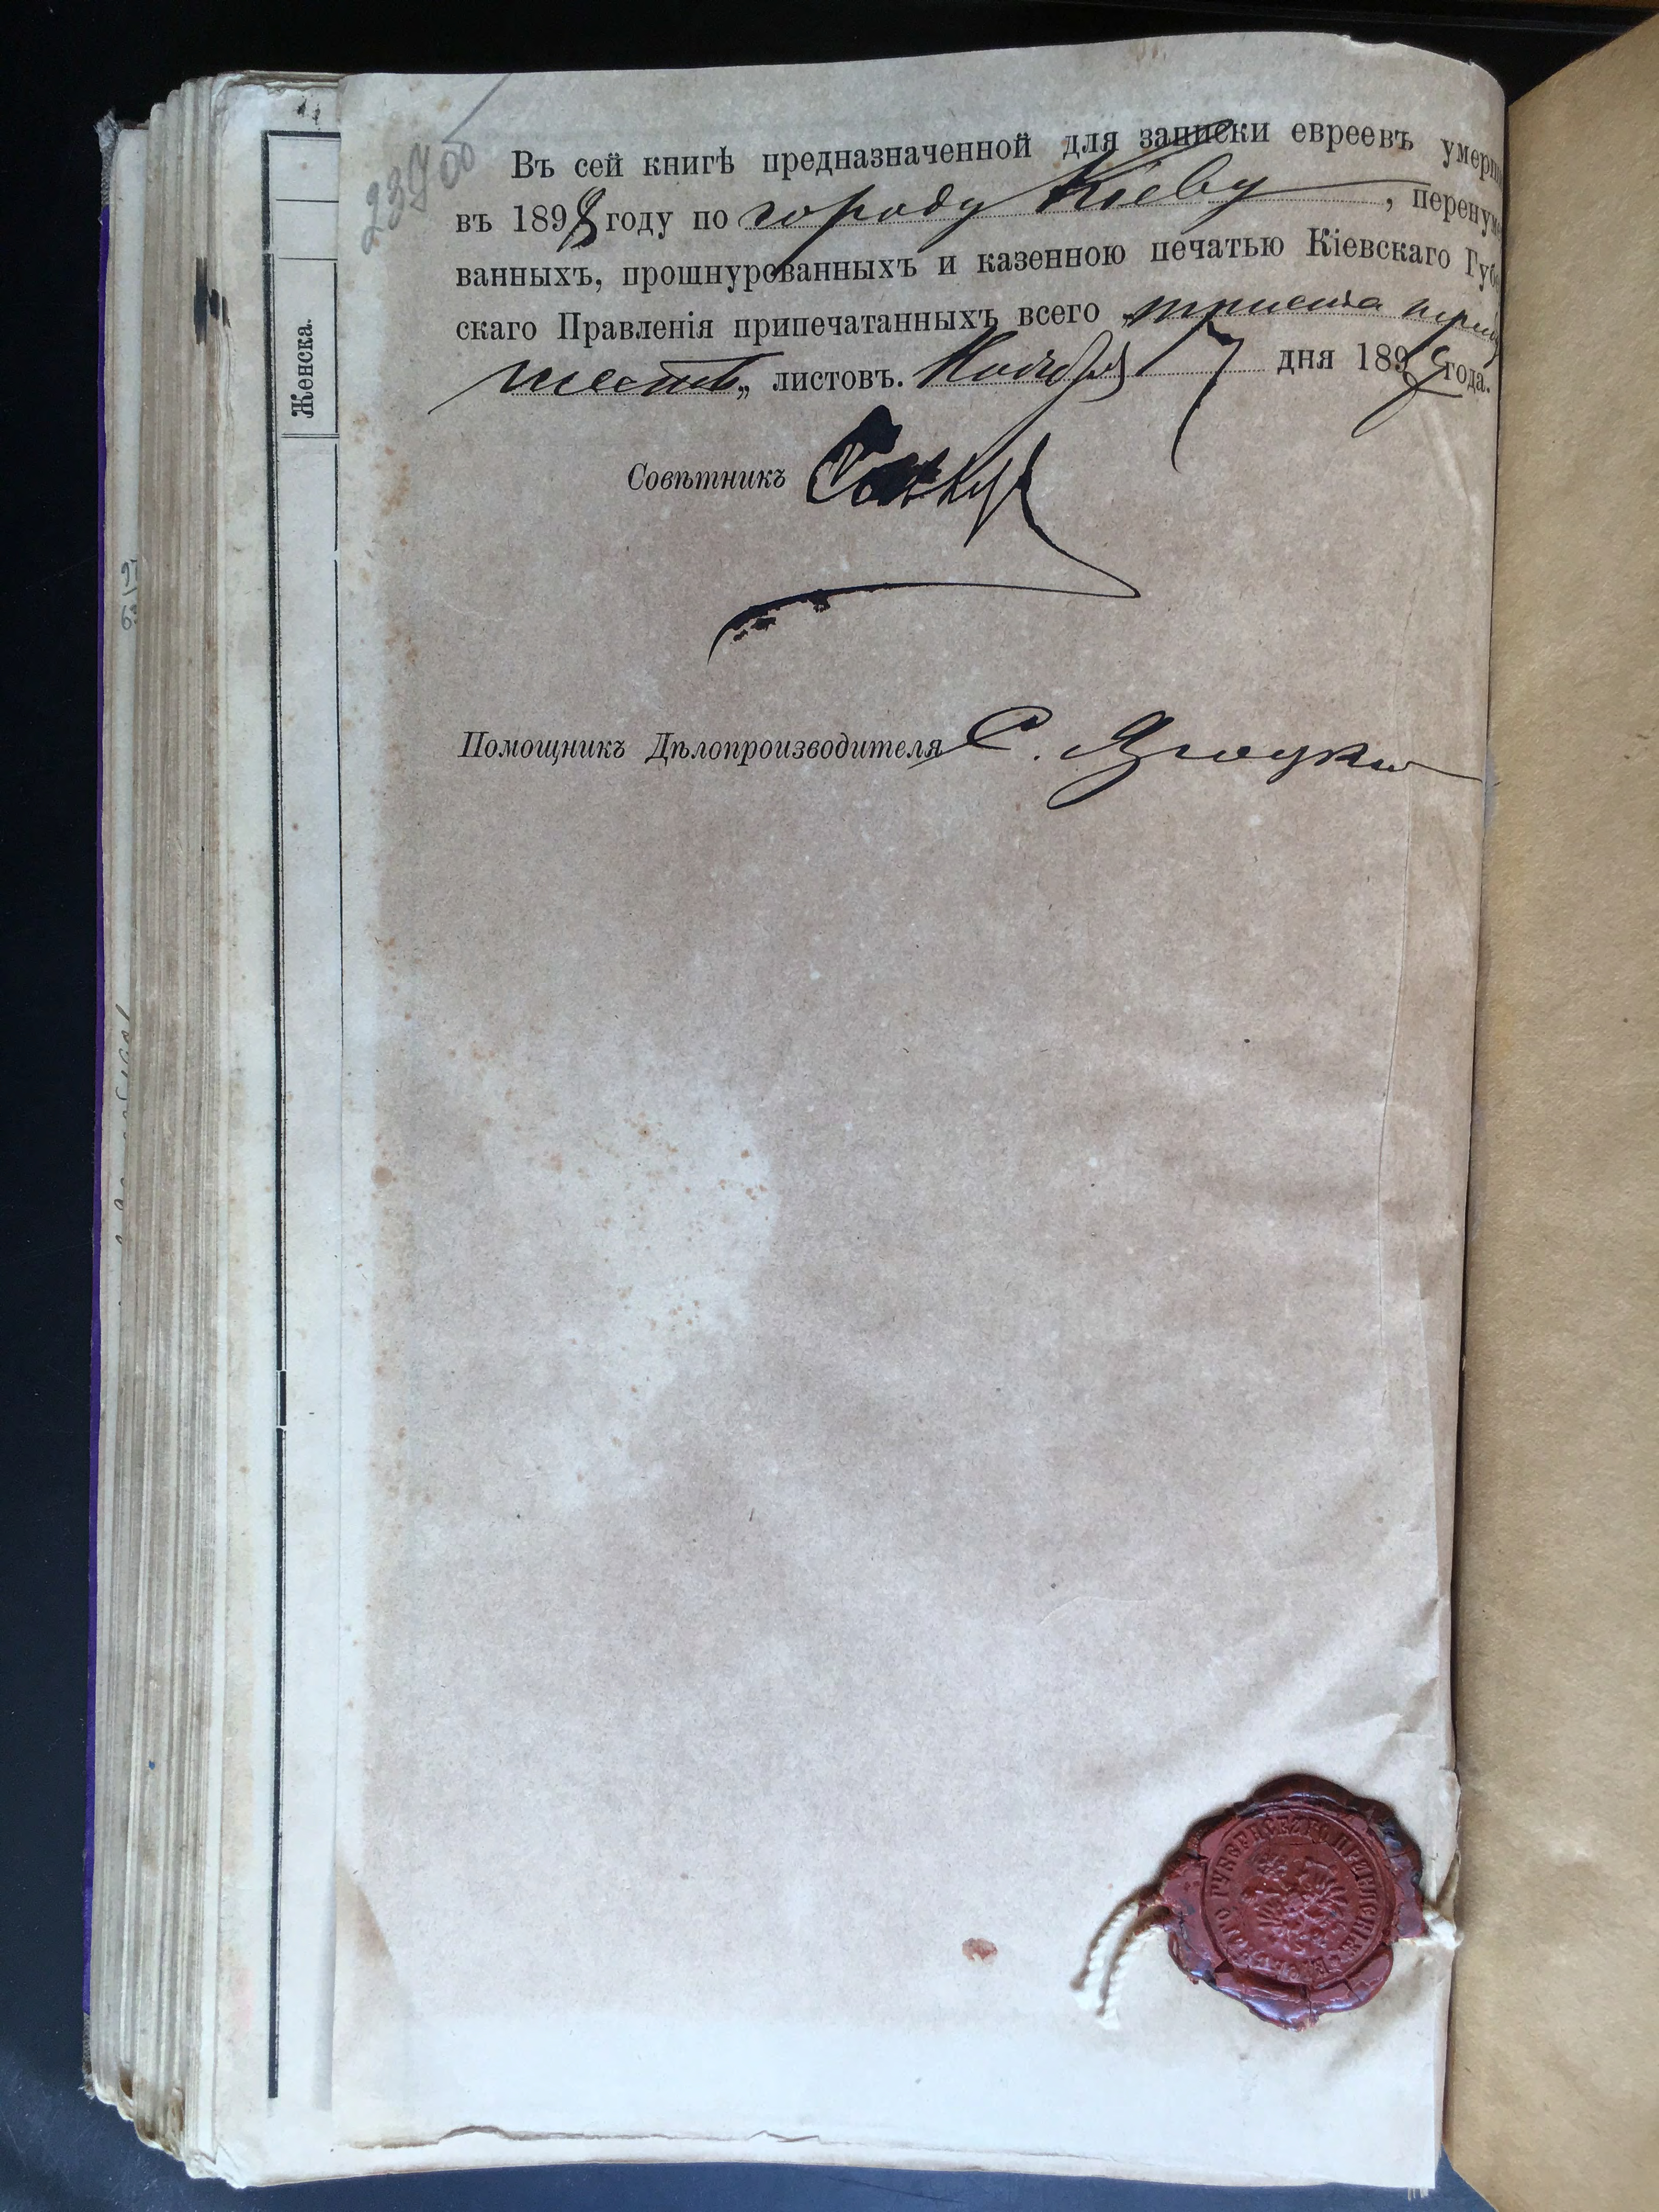 Въ сей книгѣ предназначенной для записки евреевъ умерш
въ 1898 году по городу Кіеву, перенуме
ванныхъ, прошнурованныхъ и казенною печатью Кіевскаго Губе
скаго Правленія припечатанныхъ всего „триста
шесть„ листовъ. Ноября 17 дня 189 года.
Совѣтникъ
Помощникъ Дѣлопроизводителя С.
Женска.
ГУБЕРНСКАГО ПРАВЛЕНІЯ